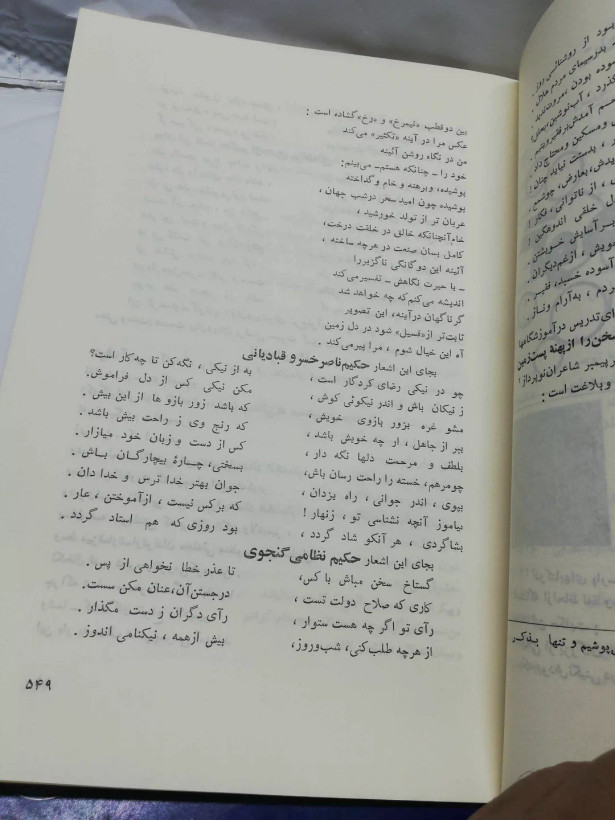 بین دوقطب «نیمرخ» و «رخ» گشاده است :
عکس مرا در آینه «تکثیر» می‌کند
من در نگاه روشن آئینه
خود را ـ چنانکه هستم ـ می‌بینم :
پوشیده ، وبرهنه و خام وگداخته
پوشیده چون امید سحر درشب جهان ،
عریان تر از تولد خورشید ،
خام آنچنانکه خالق در خلقت درخت ،
کامل بسان صنعت در هرچه ساخته ،
آئینه این دوگانگی ناگزیر را
ـ با حیرت نگاهش ـ تفسیر می‌کند
اندیشه می‌کنم که چه خواهد شد
گر ناگهان درآینه ، این تصویر
ثابت‌تر از «فسیل» شود در دل زمین
آه این خیال شوم ، مرا پیر می‌کند .
بجای این اشعار حکیم ناصر خسرو قبادیانی
چو در نیکی رضای کردگار است ، به از نیکی ، نگه‌کن تا چه کار است؟
ز نیکان باش و اندر نیکوئی کوش ، مکن نیکی کس از دل فراموش .
مشو غره بزور بازوی خویش ، که باشد زور بازو ها از این بیش .
ببر از جاهل ، ار چه خویش باشد ، که رنج وی ز راحت بیش باشد .
بلطف و مرحمت دلها نگه دار ، کس از دست و زبان خود میازار .
چومرهم ، خسته را راحت رسان باش ، بسختی ، چـارهٔ بیچارگـان بـاش .
بپوی ، اندر جوانی ، راه یزدان ، جوان بهتر خدا ترس و خدا دان .
بیاموز آنچه نشناسی تو ، زنهار ! که برکس نیست ، ازآموختن ، عار .
بشاگردی ، هر آنکو شاد گردد ، بود روزی که هم استاد گردد .
بجای این اشعار حکیم نظامی گنجوی
گستاخ سخن مباش با کس ، تا عذر خطا نخواهی از پس .
کاری که صلاح دولت تست ، درجستن‌آن ، عنان مکن سست .
رآی تو اگر چه هست ستوار ، رآی دگران ز دست مگذار .
از هرچه طلب کنی ، شب‌وروز ، بیش ازهمه ، نیکنامی اندوز .
۵۴۹
سود از روشنائی روز .
بدرسیمای مردم
ویدش ، بعارض ،
، از ناتوانی ،
خلقی اندوهگین !
آسایش خویشتن .
خویش ، ازغم‌دیگران .
آسوده خسبد ، فقیر .
ردم ، به‌آرام ونـاز .
ای‌تدریس درآموزشگاهها
سخن را ازپهنه پست‌زمین
پیمبر شاعران نوپرداز !
و بلاغت است :
پوشیم و تنها بـذکـر